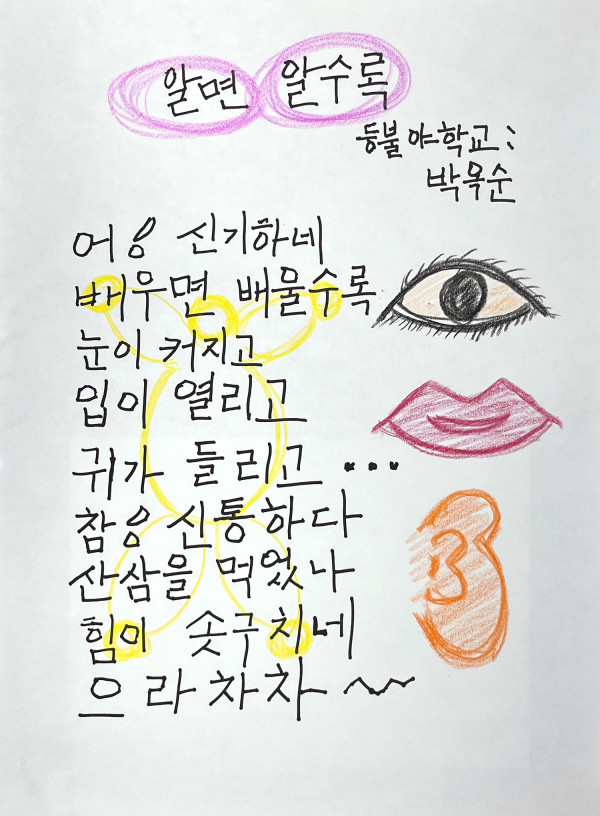 알면 알수록
등불 야학교:
박옥순
어응 신기하네
배우면 배울수록
눈이 커지고
입이 열리고
귀가 들리고 ...
참응 신통하다
산삼을 먹었나
힘이 솟구치네
으라차차~